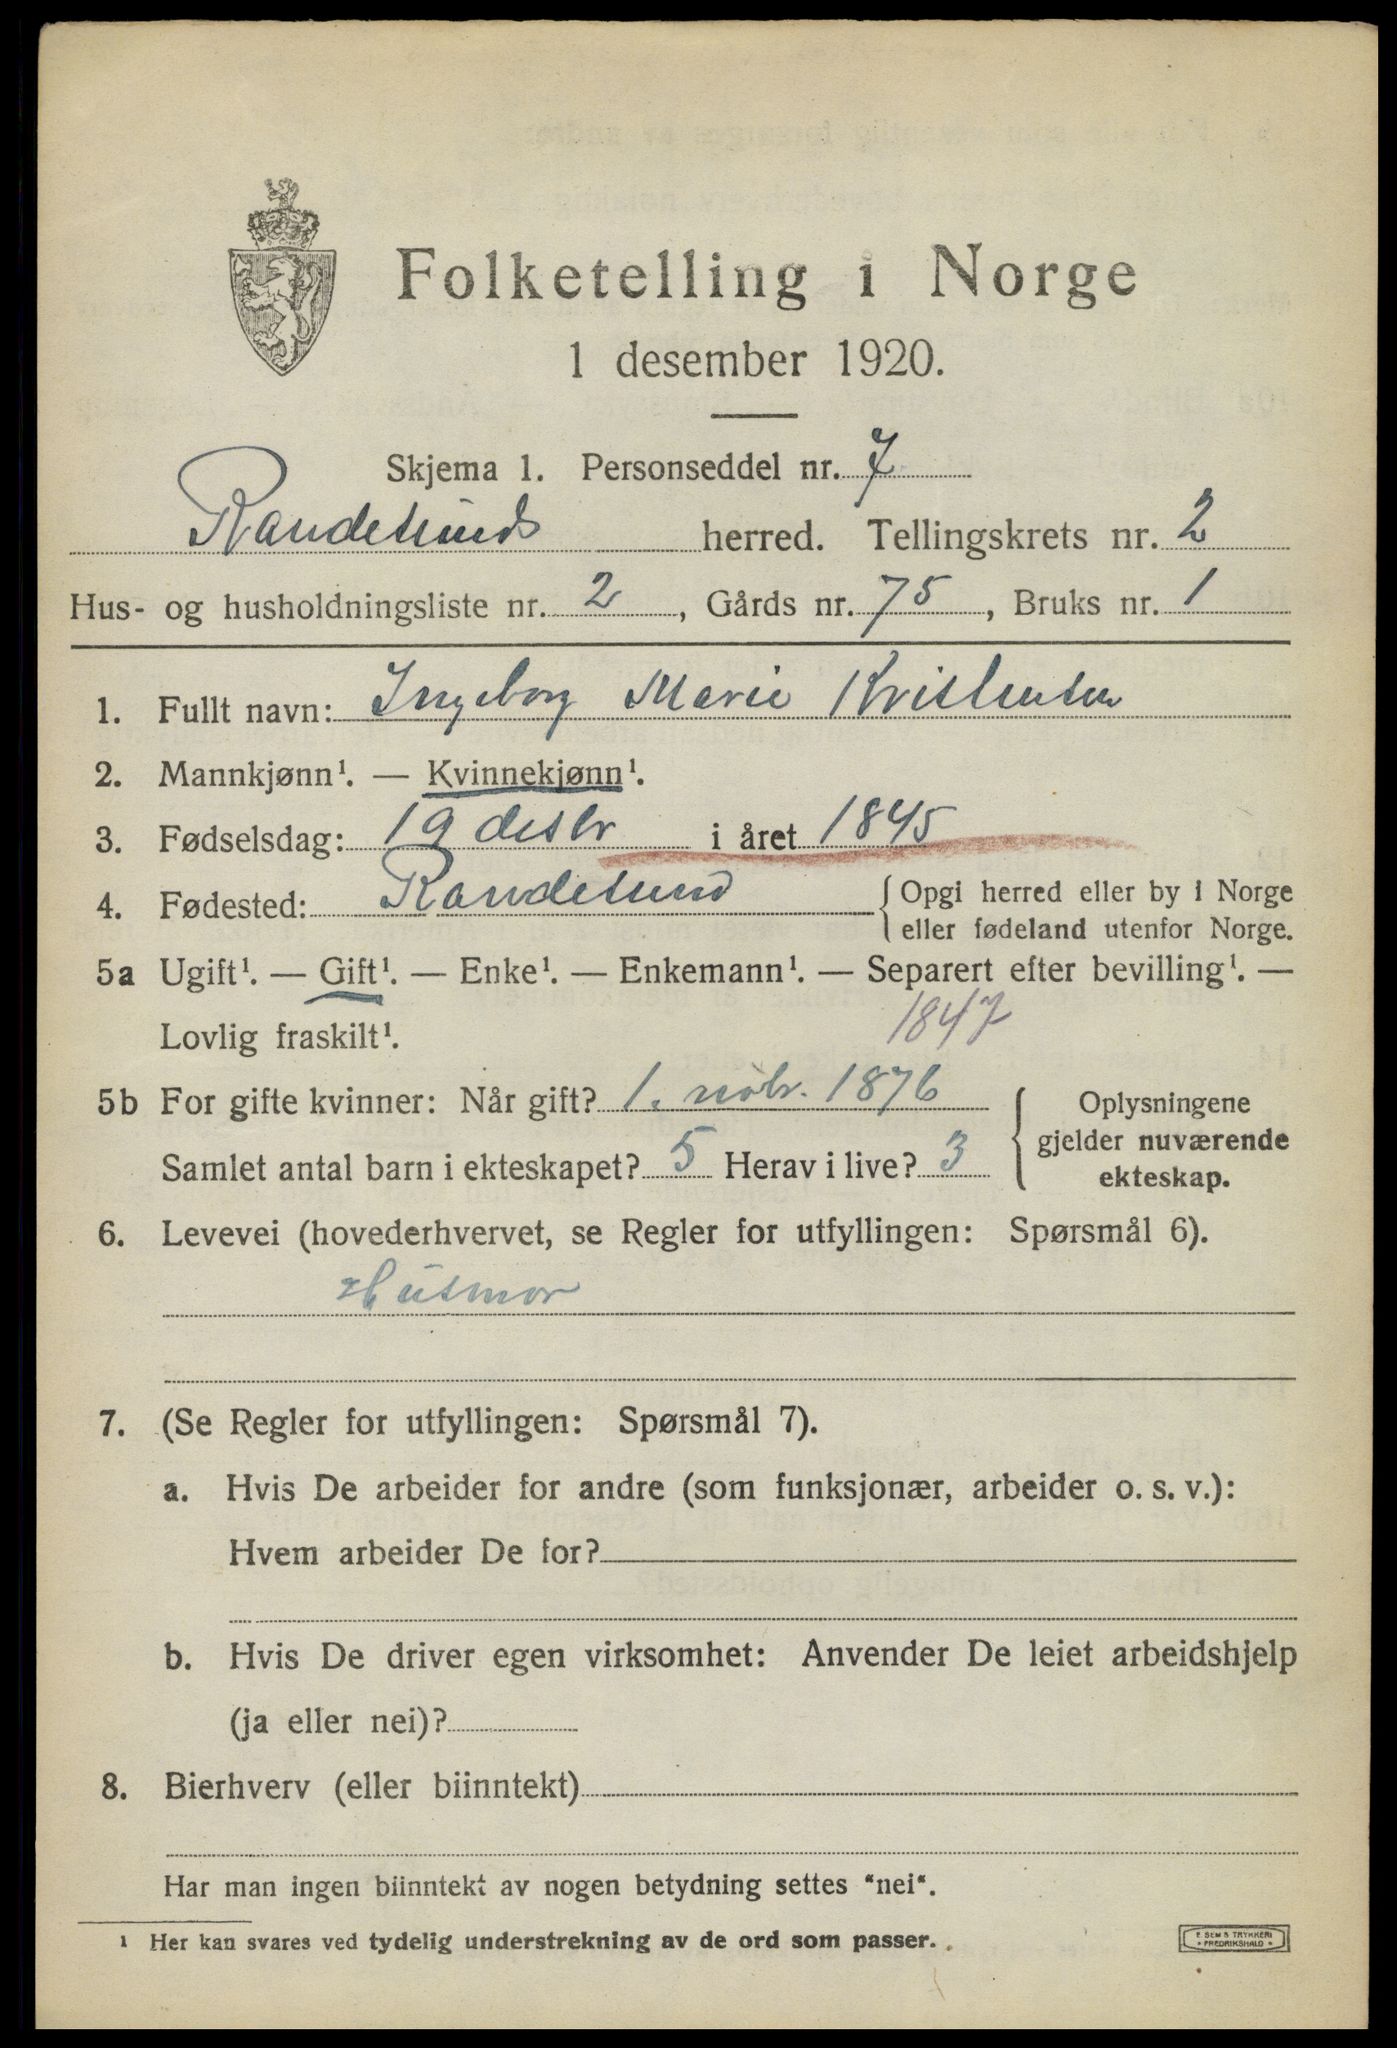 Folketelling i Norge
1 desember 1920.
Skjema 1. Personseddel nr. 7
Randesunds herred. Tellingskrets nr. 2
Hus- og husholdningsliste nr. 2, Gårds nr. 75, Bruks nr. 1
1. Fullt navn: Ingeborg Marie Kristensen
2. Mannkjønn¹. — Kvinnekjønn¹.
3. Fødselsdag: 19 desbr i året 1845
4. Fødested: Randesund { Opgi herred eller by i Norge
eller fødeland utenfor Norge.
5a Ugift¹. — Gift¹. — Enke¹. — Enkemann¹. — Separert efter bevilling¹. —
Lovlig fraskilt¹. 1847
5b For gifte kvinner: Når gift? 1. novbr. 1876
Samlet antal barn i ekteskapet? 5 Herav i live? 3
{ Oplysningene
gjelder nuværende
ekteskap.
6. Levevei (hovederhvervet, se Regler for utfyllingen: Spørsmål 6).
Husmor
7. (Se Regler for utfyllingen: Spørsmål 7).
a. Hvis De arbeider for andre (som funksjonær, arbeider o. s. v.):
Hvem arbeider De for?
b. Hvis De driver egen virksomhet: Anvender De leiet arbeidshjelp
(ja eller nei)?
8. Bierhverv (eller biinntekt)
Har man ingen biinntekt av nogen betydning settes "nei".
¹ Her kan svares ved tydelig understrekning av de ord som passer.
E. SEM'S TRYKKERI
• FREDRIKSHALD •